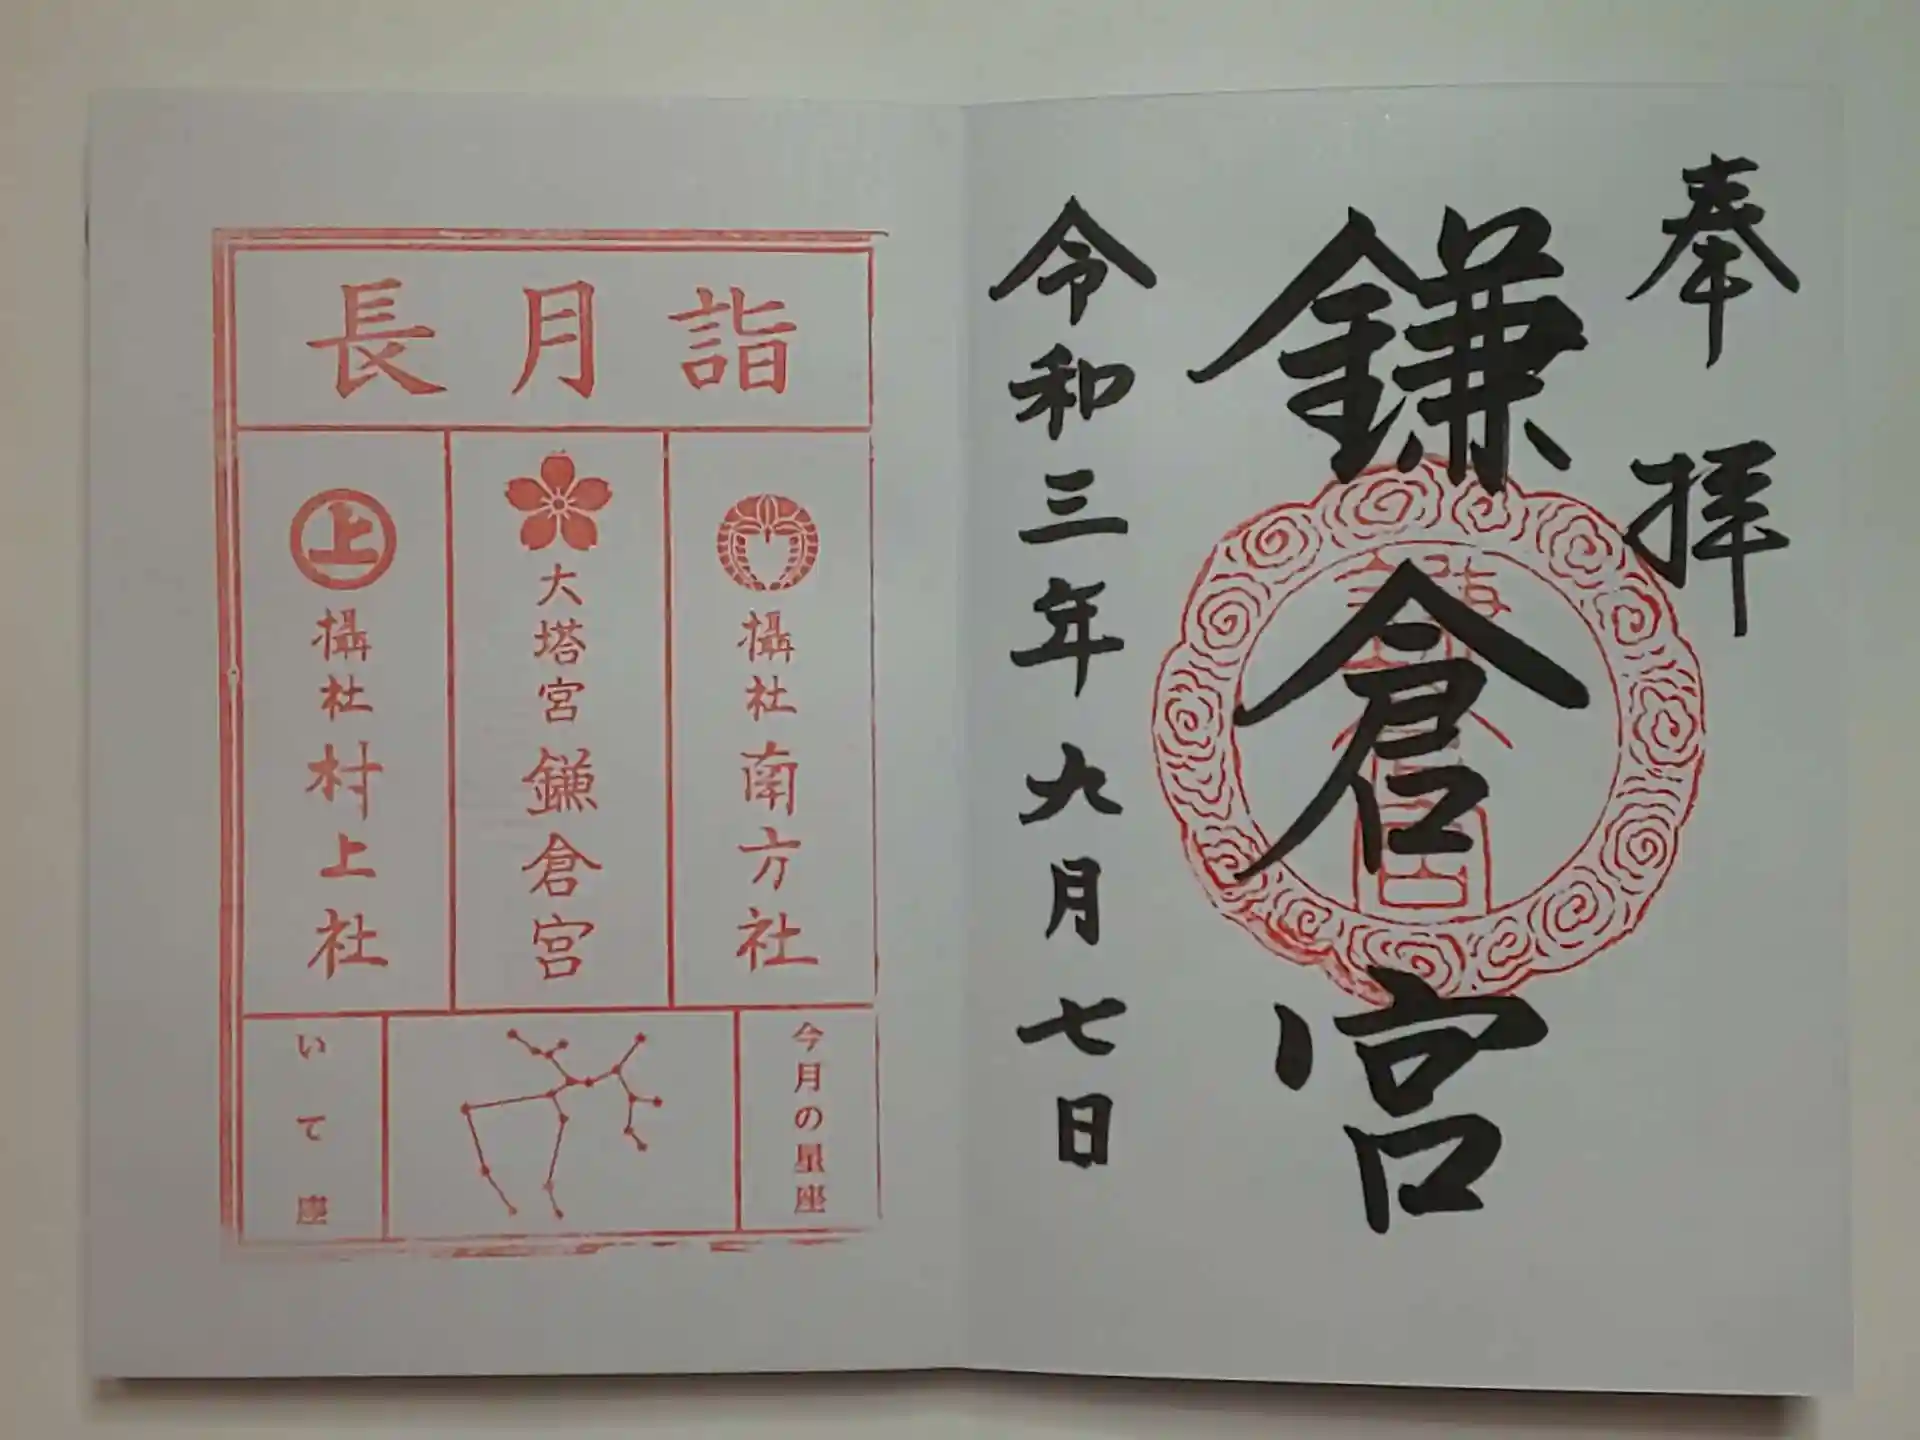 奉拝
鎌倉宮
令和三年九月七日
長月詣
攝社南方社
大塔宮鎌倉宮
上
攝社村上社
今月の星座
いて座